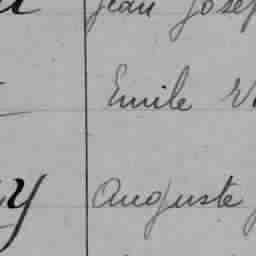 Jean Josep
Emile V
y Auguste